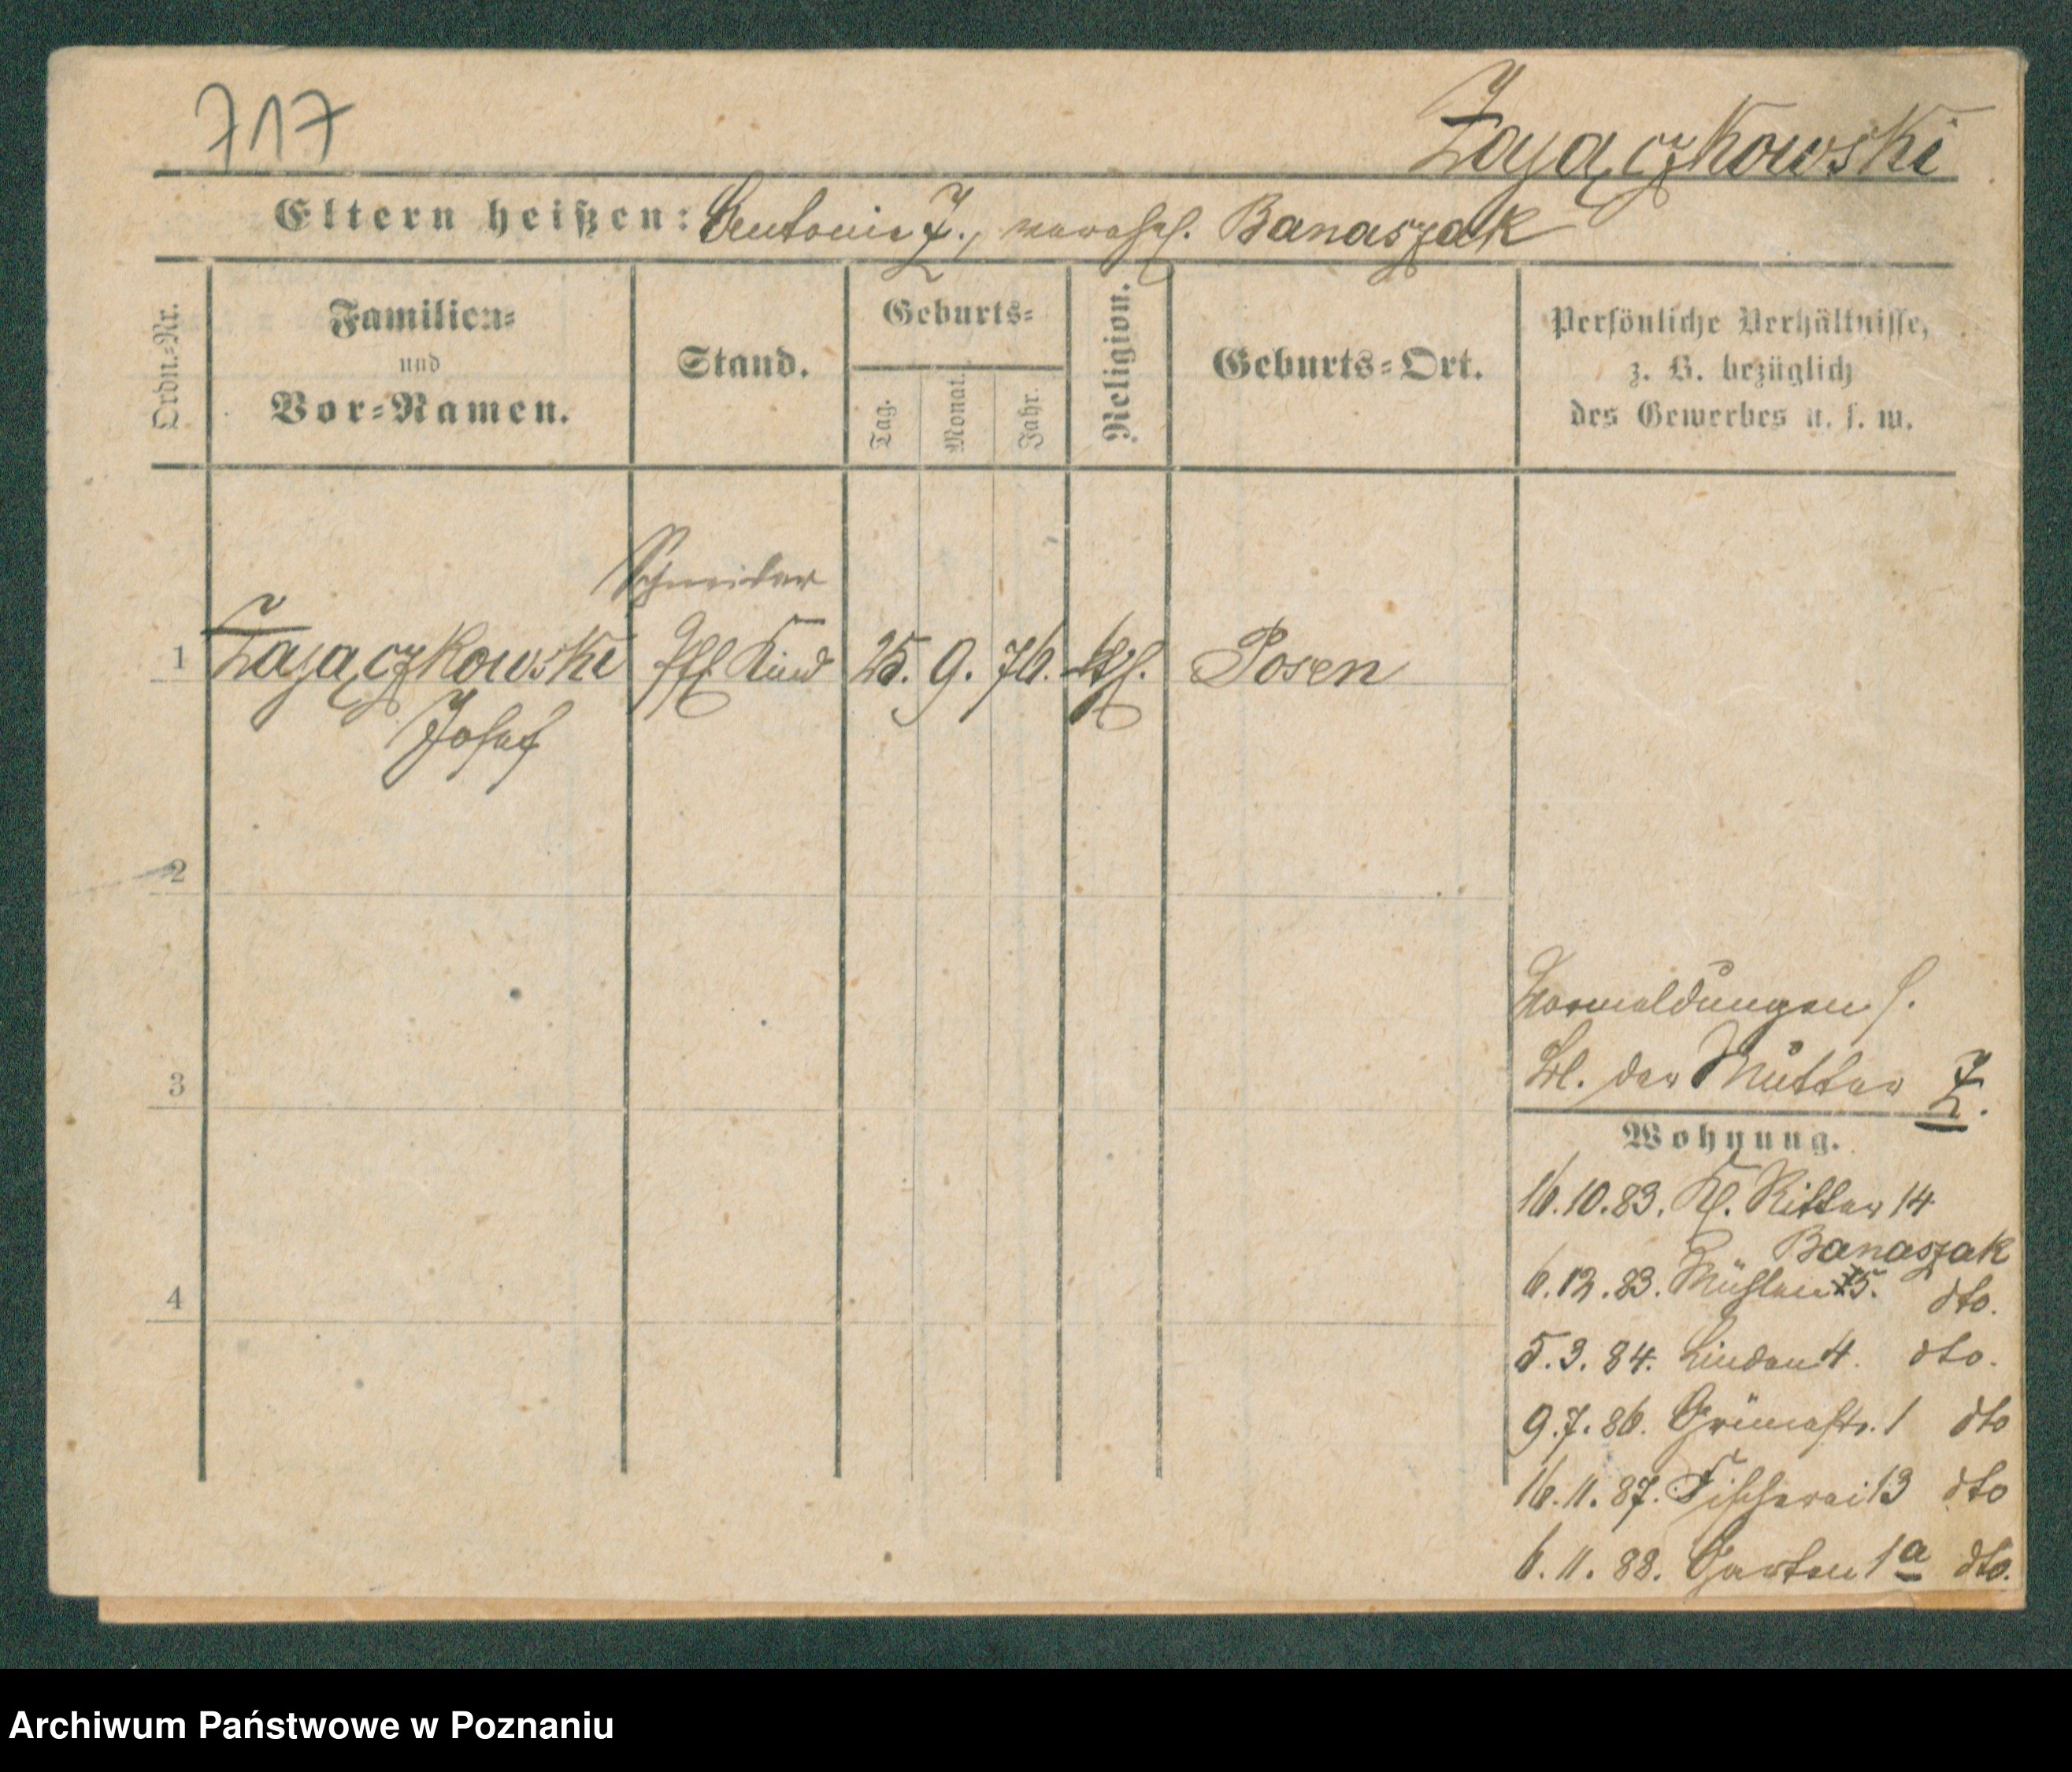 717
Zajączkowski
Eltern heißen: Antonie Z., verehel. Banaszak
Ordn.-Nr.
Familien-
und
Vor-Namen.
Stand.
Geburts-
Tag.
Monat.
Jahr.
Religion.
Geburts-Ort.
Persönliche Verhältnisse,
z. B. bezüglich
des Gewerbes u. s. w.
Schneider
1 Zajączkowski Kind 25. 9. 76. kth. Posen
Josef
2
3
4
Vormeldungen s.
Bl. der Mutter Z.
Wohnung.
16.10.83. Kl. Ritter 14
Banaszak
6.12.83. Mühlen 5. dto.
5.3.84. Linden 4. dto.
9.7.86. Grünestr. 1 dto
16.11.87. Fischerei 13 dto
6.11.88. Garten 1a dto.
Archiwum Państwowe w Poznaniu